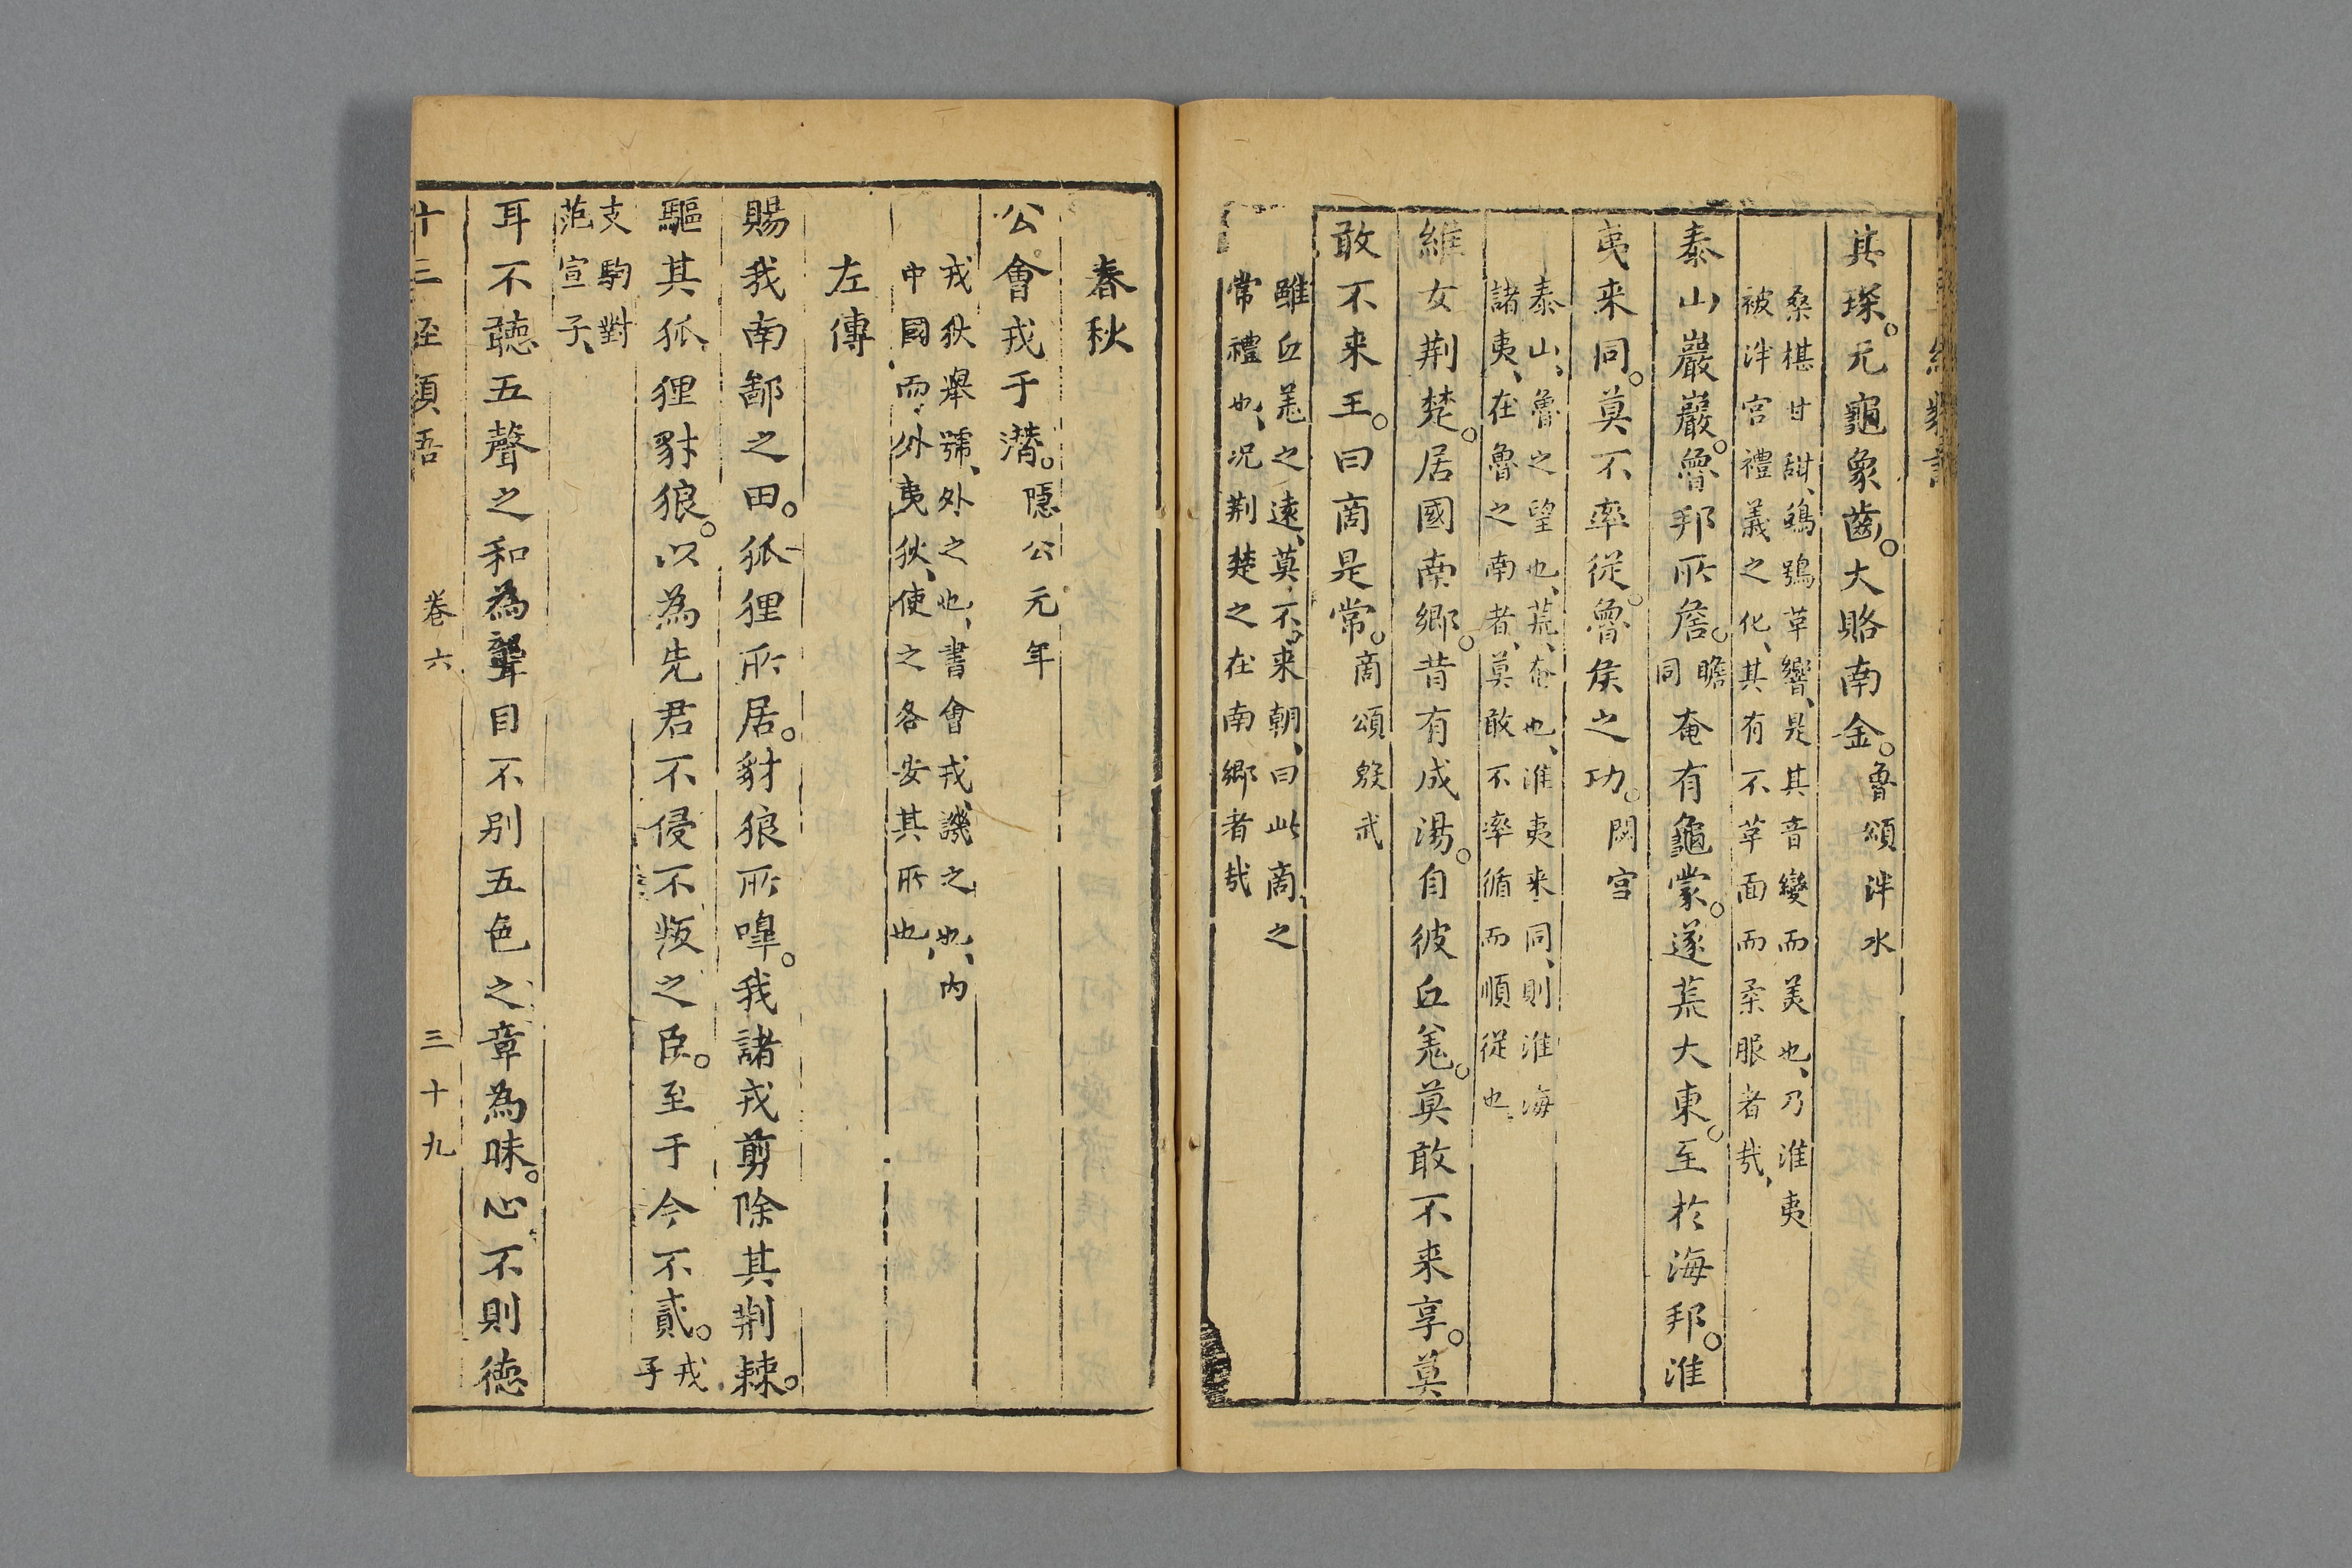 其琛。元龜象齒。大賂南金。魯頌泮水
桑椹甘甜、鴞鴞草響、是其音變而美也、乃淮夷
被泮宮禮義之化、其有不革面而柔服者哉、
泰山巖巖。魯邦所詹。瞻同奄有龜蒙。遂荒大東。至於海邦。淮
夷来同。莫不率從。魯侯之功。閟宮
泰山、魯之望也、荒、奄也、淮夷来同、則淮海
諸夷、在魯之南者、莫敢不率循而順從也
維女荆楚。居國南郷。昔有成湯。自彼氐羌。莫敢不来享。莫
敢不来王。曰商是常。商頌殷武
雖氐羌之遠、莫不来朝、曰此商之
常禮也、况荆楚之在南郷者哉
春秋
公會戎于潜。隱公元年
戎狄舉號、外之也、書會戎譏之也、内
中國而外夷狄、使之各安其所也
左傳
賜我南鄙之田。狐狸所居。豺狼所嘷。我諸戎剪除其荆棘。
驅其狐狸豺狼。以為先君不侵不叛之臣。至于今不貳。戎子
支駒對
范宣子、
耳不聴五聲之和為聾目不别五色之章為昧。心不則徳
卷六 三十九